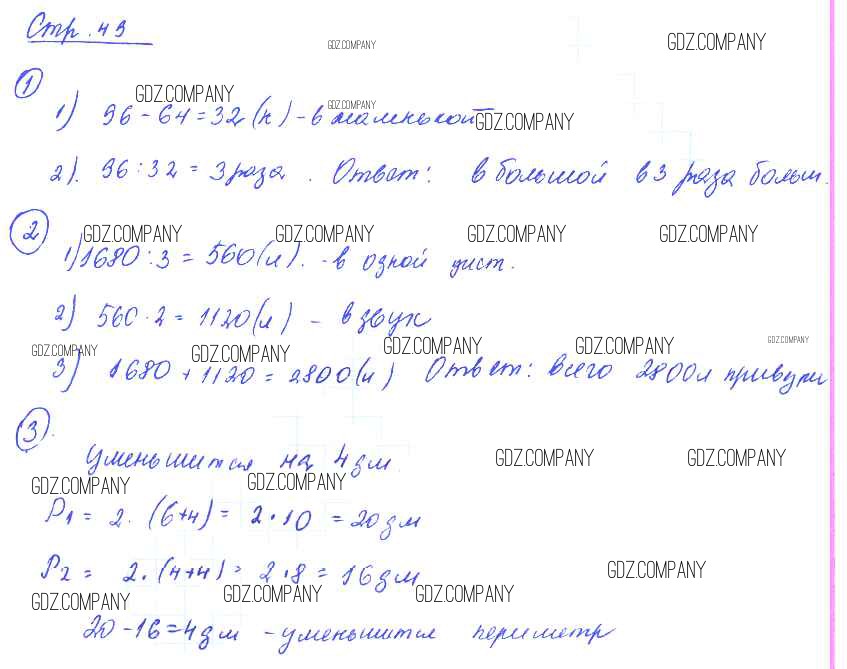 Стр. 49
GDZ.COMPANY GDZ.COMPANY
1
GDZ.COMPANY GDZ.COMPANY
1) 96 - 64 = 32 (к) - в маленькой GDZ.COMPANY
2). 96 : 32 = 3 раза. Ответ: в большой в 3 раза больш.
2
GDZ.COMPANY GDZ.COMPANY GDZ.COMPANY GDZ.COMPANY
1) 1680 : 3 = 560 (л). - в одной дист.
2) 560 · 2 = 1120 (л) - в двух
GDZ.COMPANY GDZ.COMPANY GDZ.COMPANY GDZ.COMPANY GDZ.COMPANY
3) 1680 + 1120 = 2800 (л) Ответ: всего 2800 л
3.
уменьшится на 4 дм.
GDZ.COMPANY GDZ.COMPANY
GDZ.COMPANY GDZ.COMPANY
P1 = 2 · (6+4) = 2 · 10 = 20 дм
P2 = 2 · (4+4) = 2 · 8 = 16 дм
GDZ.COMPANY
GDZ.COMPANY GDZ.COMPANY GDZ.COMPANY
20 - 16 = 4 дм - уменьшится периметр